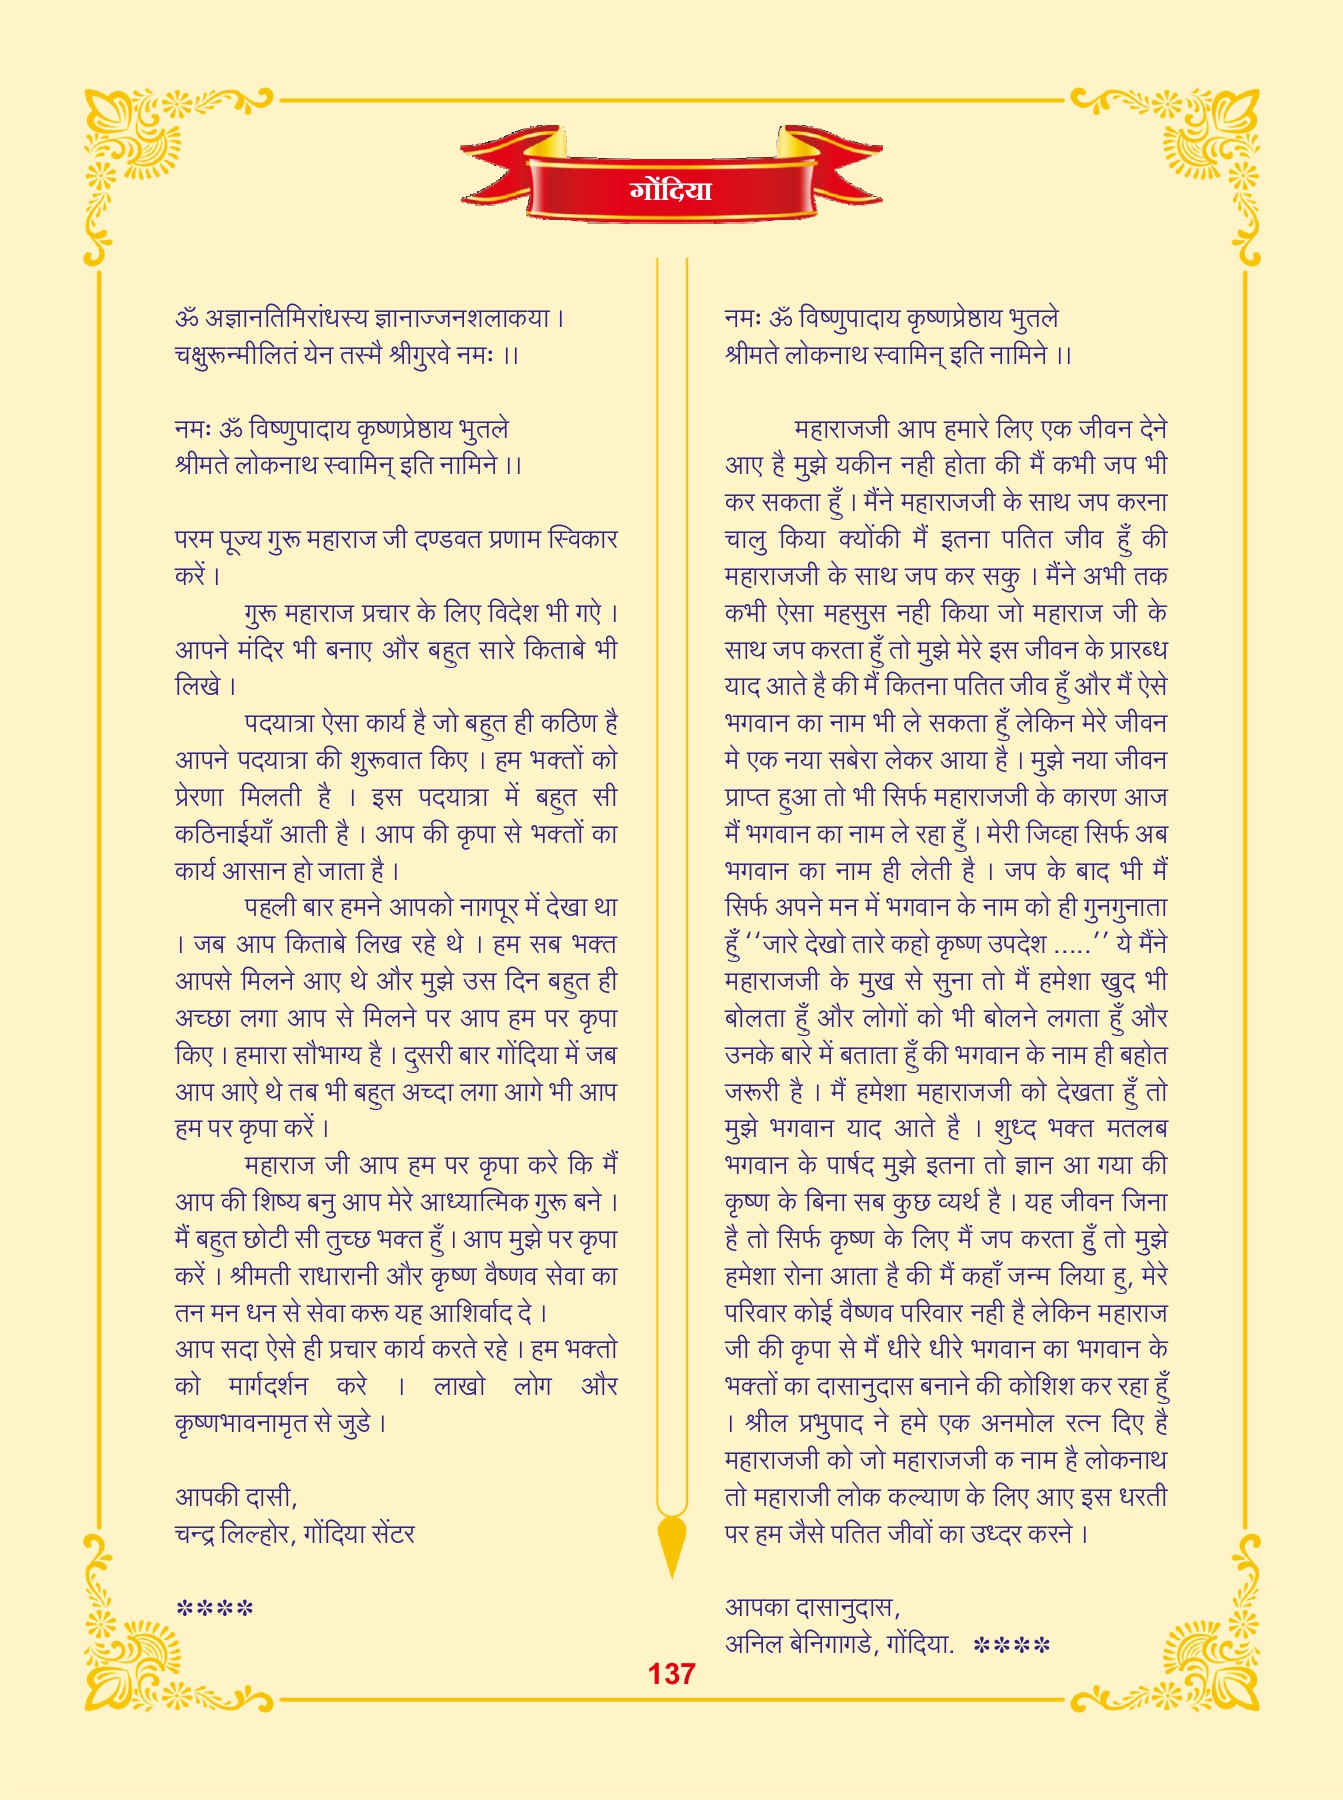 गोंदिया
ॐ अज्ञानतिमिरांधस्य ज्ञानाज्जनशलाकया ।
चक्षुरून्मीलितं येन तस्मै श्रीगुरवे नमः ।।
नमः ॐ विष्णुपादाय कृष्णप्रेष्ठाय भुतले
श्रीमते लोकनाथ स्वामिन् इति नामिने ।।
परम पूज्य गुरू महाराज जी दण्डवत प्रणाम स्विकार
करें ।
गुरू महाराज प्रचार के लिए विदेश भी गऐ ।
आपने मंदिर भी बनाए और बहुत सारे किताबे भी
लिखे ।
पदयात्रा ऐसा कार्य है जो बहुत ही कठिण है
आपने पदयात्रा की शुरूवात किए । हम भक्तों को
प्रेरणा मिलती है । इस पदयात्रा में बहुत सी
कठिनाईयाँ आती है । आप की कृपा से भक्तों का
कार्य आसान हो जाता है ।
पहली बार हमने आपको नागपूर में देखा था
। जब आप किताबे लिख रहे थे । हम सब भक्त
आपसे मिलने आए थे और मुझे उस दिन बहुत ही
अच्छा लगा आप से मिलने पर आप हम पर कृपा
किए । हमारा सौभाग्य है । दुसरी बार गोंदिया में जब
आप आऐ थे तब भी बहुत अच्दा लगा आगे भी आप
हम पर कृपा करें ।
महाराज जी आप हम पर कृपा करे कि मैं
आप की शिष्य बनु आप मेरे आध्यात्मिक गुरू बने ।
मैं बहुत छोटी सी तुच्छ भक्त हूँ । आप मुझे पर कृपा
करें । श्रीमती राधारानी और कृष्ण वैष्णव सेवा का
तन मन धन से सेवा करू यह आशिर्वाद दे ।
आप सदा ऐसे ही प्रचार कार्य करते रहे । हम भक्तो
को मार्गदर्शन करे । लाखो लोग और
कृष्णभावनामृत से जुडे ।
आपकी दासी,
चन्द्र लिल्होर, गोंदिया सेंटर
****
नमः ॐ विष्णुपादाय कृष्णप्रेष्ठाय भुतले
श्रीमते लोकनाथ स्वामिन् इति नामिने ।।
महाराजजी आप हमारे लिए एक जीवन देने
आए है मुझे यकीन नही होता की मैं कभी जप भी
कर सकता हुँ । मैंने महाराजजी के साथ जप करना
चालु किया क्योंकी मैं इतना पतित जीव हुँ की
महाराजजी के साथ जप कर सकु । मैंने अभी तक
कभी ऐसा महसुस नही किया जो महाराज जी के
साथ जप करता हुँ तो मुझे मेरे इस जीवन के प्रारब्ध
याद आते है की मैं कितना पतित जीव हुँ और मैं ऐसे
भगवान का नाम भी ले सकता हुँ लेकिन मेरे जीवन
मे एक नया सबेरा लेकर आया है । मुझे नया जीवन
प्राप्त हुआ तो भी सिर्फ महाराजजी के कारण आज
मैं भगवान का नाम ले रहा हुँ । मेरी जिव्हा सिर्फ अब
भगवान का नाम ही लेती है । जप के बाद भी मैं
सिर्फ अपने मन में भगवान के नाम को ही गुनगुनाता
हुँ ‘‘जारे देखो तारे कहो कृष्ण उपदेश .....’’ ये मैंने
महाराजजी के मुख से सुना तो मैं हमेशा खुद भी
बोलता हुँ और लोगों को भी बोलने लगता हुँ और
उनके बारे में बताता हुँ की भगवान के नाम ही बहोत
जरूरी है । मैं हमेशा महाराजजी को देखता हुँ तो
मुझे भगवान याद आते है । शुध्द भक्त मतलब
भगवान के पार्षद मुझे इतना तो ज्ञान आ गया की
कृष्ण के बिना सब कुछ व्यर्थ है । यह जीवन जिना
है तो सिर्फ कृष्ण के लिए मैं जप करता हुँ तो मुझे
हमेशा रोना आता है की मैं कहाँ जन्म लिया हु, मेरे
परिवार कोई वैष्णव परिवार नही है लेकिन महाराज
जी की कृपा से मैं धीरे धीरे भगवान का भगवान के
भक्तों का दासानुदास बनाने की कोशिश कर रहा हुँ
। श्रील प्रभुपाद ने हमे एक अनमोल रत्न दिए है
महाराजजी को जो महाराजजी क नाम है लोकनाथ
तो महाराजी लोक कल्याण के लिए आए इस धरती
पर हम जैसे पतित जीवों का उध्दर करने ।
आपका दासानुदास,
अनिल बेनिगागडे, गोंदिया. ****
137